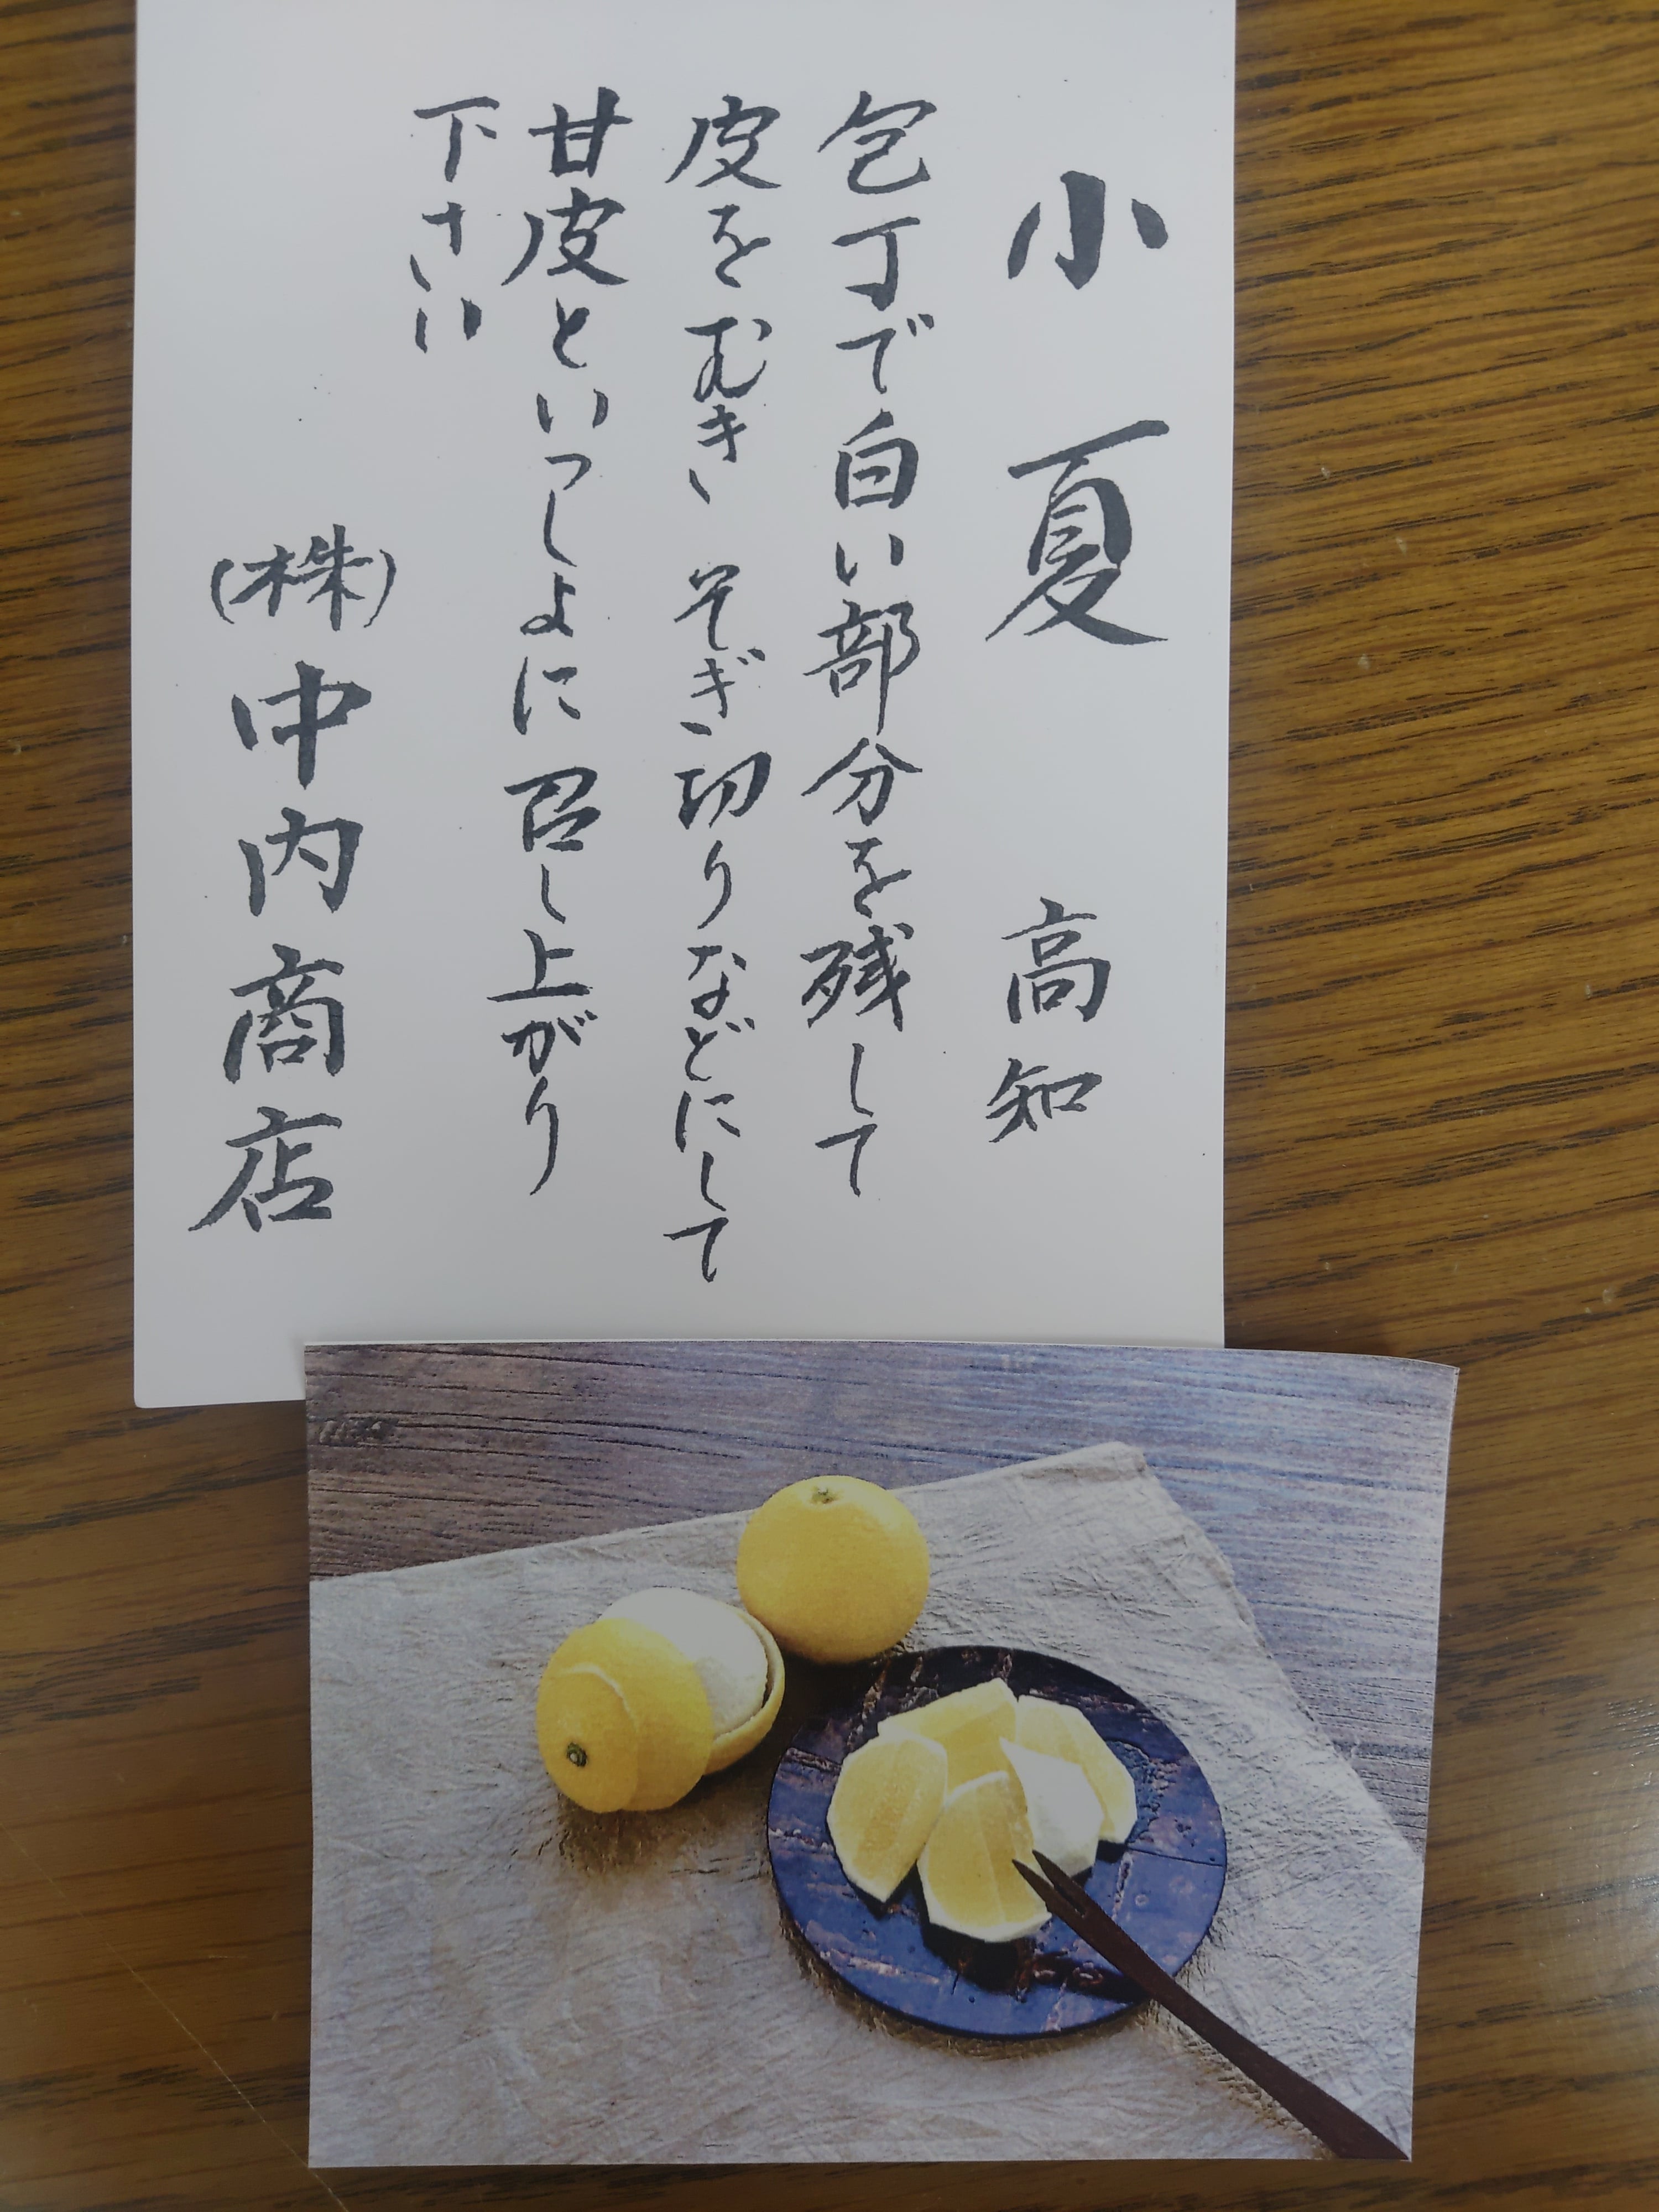 小夏 高知
包丁で白い部分を残して
皮をむき、そぎ切りなどにして
甘皮といっしょに召し上がり
下さい
(株)中内商店